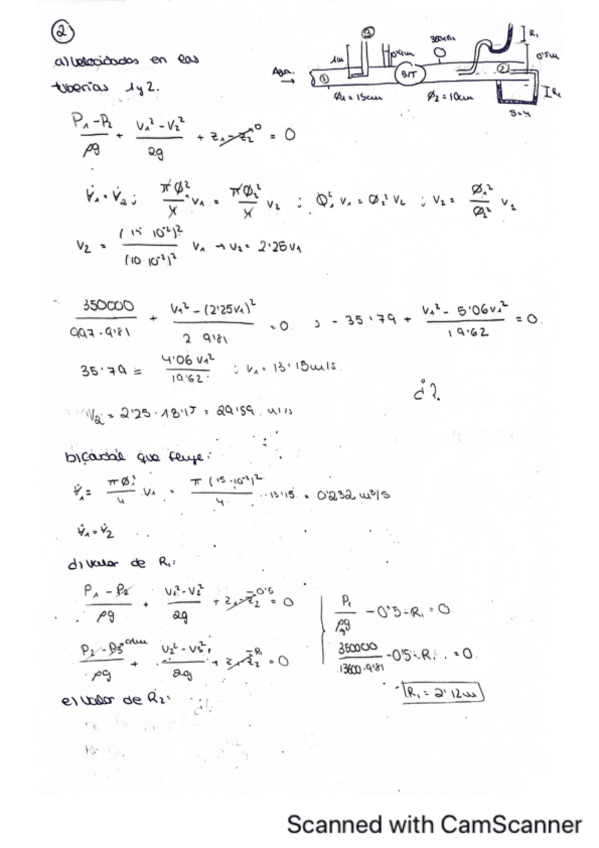 ②
a) Velocidades en las
tuberías 1 y 2.
Agua.
1m
350 kPa
R₁
0'5m
① ② ③
BIT
R₂
Ø₁ = 15cm
Ø₂ = 10cm
S=4
P₁-P₂/ρg + V₁²-V₂²/2g + z₁-z₂⁰ = 0
V̇₁=V̇₂ ; πØ₁²/4 V₁ = πØ₂²/4 V₂ ; Ø₁² V₁ = Ø₂² V₂ ; V₂ = Ø₁²/Ø₂² V₁
V₂ = (15·10⁻²)²/(10·10⁻²)² V₁ → V₂= 2'25V₁
350000/997·9'81 + V₁²-(2'25V₁)²/2·9'81 = 0 ; - 35'79 + V₁²-5'06V₁²/19'62 = 0.
35'79 = 4'06 V₁²/19'62 ; V₁= 13'15m/s.
¿?
V₂ = 2'25·13'15 = 29'59 m/s
b) Caudal que fluye:
V̇₁= πØ₁²/4 V₁ = π(15·10⁻²)²/4 ·13'15 = 0'232 m³/s
V̇₁=V̇₂
d) Valor de R₁:
P₁-P₂/ρg + V₁²-V₂²/2g + z₁-z₂^-0'5 = 0
P₁/ρg -0'5-R₁=0
P₂-P₃^atm/ρg + V₂²-V₃²/2g + z₁-z₂^-R₁ = 0
350000/13600·9'81 -0'5-R₁ = 0.
R₁= 2'12m
e) Valor de R₂:
Scanned with CamScanner